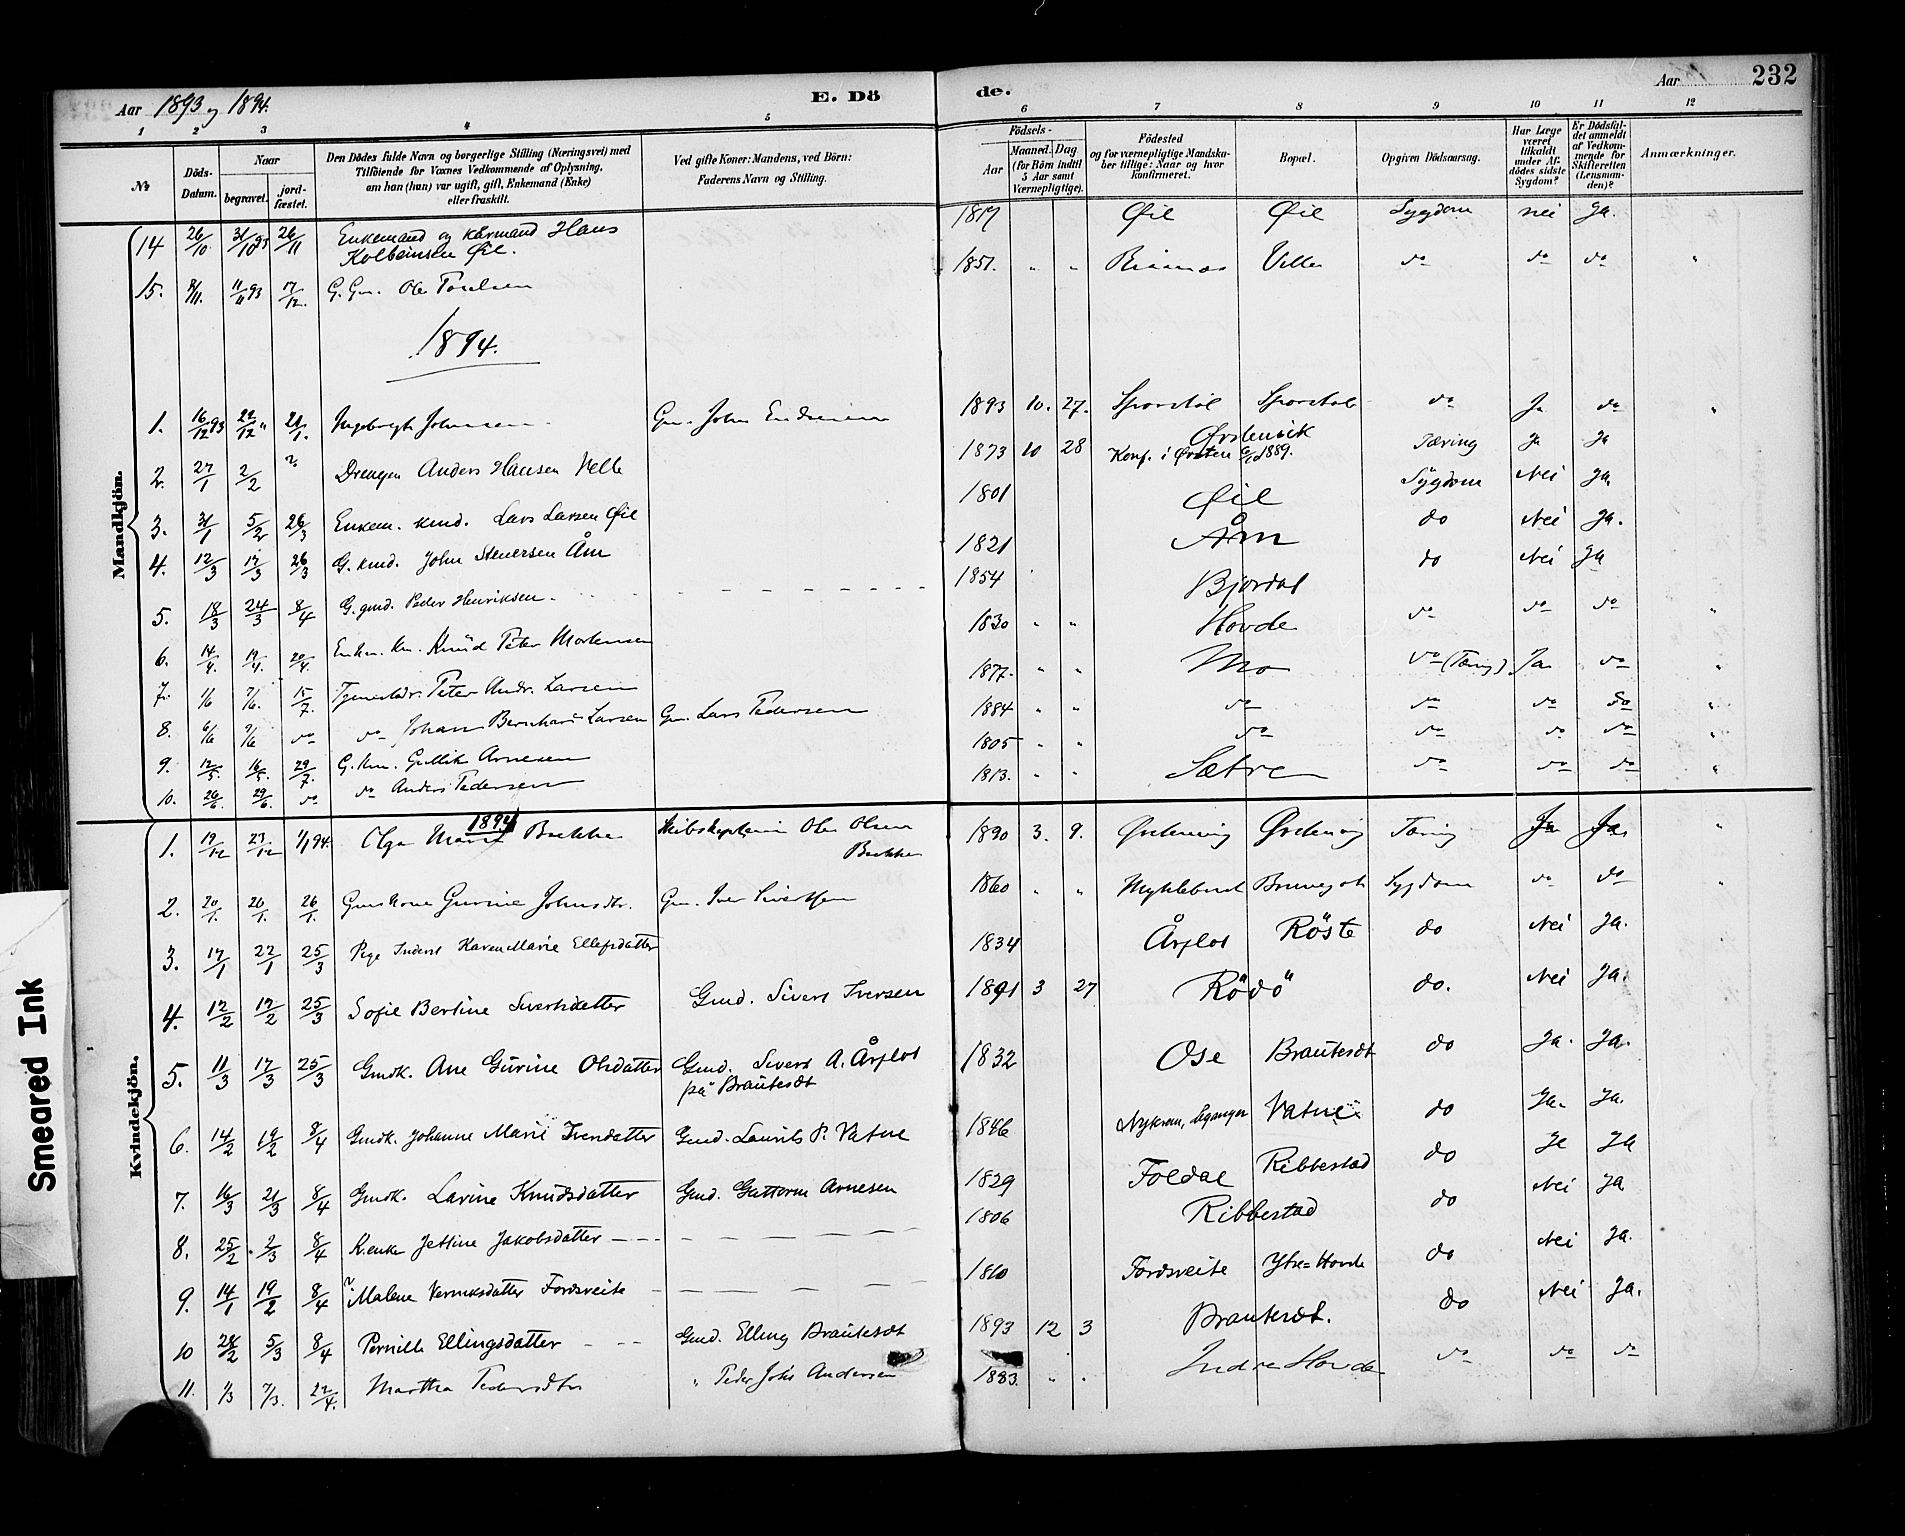 Aar 1893 og 1894.
E. Dö
de.
Aar
232
1 2 3 4 5 6 7 8 9 10 11 12
No
Döds-Datum.
Naar
begravet.
jord-fæstet.
Den Dödes fulde Navn og borgerlige Stilling (Næringsvei) med
Tilföiende for Voxnes Vedkommende af Oplysning,
om han (hun) var ugift, gift, Enkemand (Enke)
eller fraskilt.
Ved gifte Koner: Mandens, ved Börn:
Faderens Navn og Stilling.
Födsels-
Aar
Maaned. Dag
(for Börn indtil
5 Aar samt
Værnepligtige).
Födested
og for værnepligtige Mandska-
ber tillige: Naar og hvor
konfirmeret.
Bopæl.
Opgiven Dödsaarsag.
Har Læge
været
tilkaldt
under Af-
dödes sidste
Sygdom?
Er Dödsfal-
det anmeldt
af Vedkom-
mende for
Skifteretten
(Lensman-
den)?
Anmærkninger.
Mandkjön.
14 26/10 31/10 93 26/11 Enkemand og kårmand Hans Kolbeinsen Øie. 1817 Øie Øie Sygdom nei Ja.
15. 8/11. 11/11 93 17/12. G. Gm. Ole 1851. " " Velle do do do "
1894.
1. 16/12 93 22/12 " 21/1. Ingebrigt Johnsen. Gm. John Endresen 1893 10. 27. Sporstøl Sporstøl do Ja do "
2. 27/1 2/2 Drengen Anders Hansen Velle 1873 10 28 Ørstenvik Konf. i Ørsten 6/10 1889. Tæring Ja Ja
3. 31/1 5/2 26/3 Enkem. kmd. Lars Larsen Øie 1801 Øie Sygdom Nei Ja.
4. 12/3 17/3 26/3 G. kmd. John Steversen Åm 1821 Åm do Nei Ja.
5. 18/3 24/3 8/4 G. gmd. Peder Henriksen. 1854 Bjordal do Nei Ja
6. 14/4 19/4. 20/4. Enkm. Km. Knud Peter Mortensen 1830 " " Hovde do do do "
7. 1/6 7/6. 15/7. Peter Andr. Larsen 1877. " " Mo do (Tæring) Ja do "
8. 6/6 9/6 do do Johan Bernhard Larsen Gm. Lars Pedersen 1884 " " do do do do "
9. 12/5. 16/5. 29/7. G. Km. Gullik Arnesen 1805 " " do do do do "
10. 26/6. 29/6. do do Anders Pedersen 1813. " " Sætre do do do "
Kvindekjön.
1894
1. 19/12 23/12 1/1 94. Olga Marie Bakken Skibskaptein Ole Olsen Bakken 1890 3. 9. Ørstenvig Ørstenvig Tæring Ja Ja. "
2. 20/1. 26/1. 26/1. Gmskone Gurine Johnsdtr. Gm. Iver Sivertsen 1860 " " Myklebust Sygdom do do "
3. 17/1 22/1 25/3 Pige Inderst Karen Marie Ellefsdatter 1834 Årflot Röste do Nei Ja.
4. 12/2 17/2 25/3 Sofie Bertine Sivertsdatter Gmd. Sivert Iversen 1891 3 27 Rödö do. Nei Ja.
5. 11/3 17/3 25/3 Gmdk. Ane Gurine Olsdatter Gmd. Sivert A. Årflot på Brautesdt 1832 Ose Brautesdt do Ja. Ja.
6. 14/2 19/2 8/4 Gmdk. Johanne Marie Iversdatter Gmd. Laurits P. Vatne 1846 Vatne do Ja. Ja.
7. 16/3 21/3 8/4 Gmdk. Larine Knudsdatter Gmd. Guttorm Arnesen 1829 Foldal Ribbestad do Ja Ja
8. 25/2 2/3 8/4 K.enke Jettine Jakobsdatter 1806 Ribbestad do Nei Ja
9. 14/1 19/2 8/4 Malene Fordsveite 1810 Fordsveite Ytre=Hovde do Nei Ja.
10 28/2 5/3 8/4 Pernille Ellingsdatter Gmd. Elling Brautesdt 1893 12 3 Brautesdt. do Nei Ja.
11. 1/3 7/3. 22/4. Martha Pedersdtr " Peder Johs Andersen 1883. " " Indre Hovde do do do
Smeared Ink